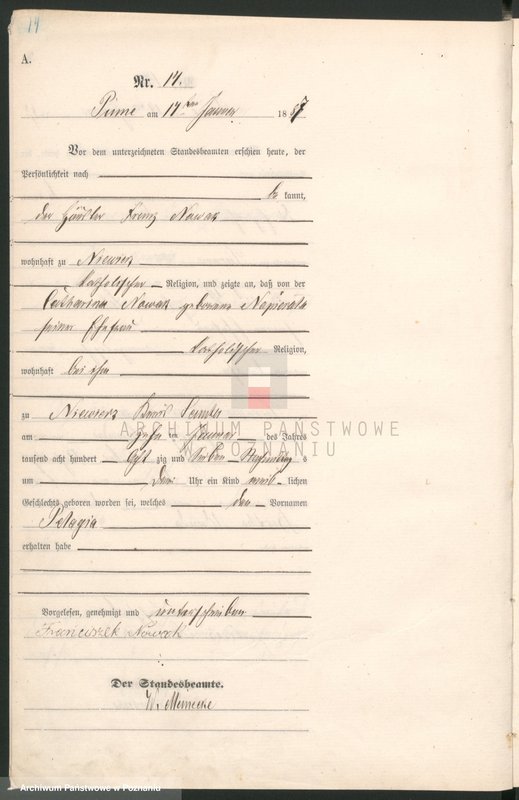 14
A.
Nr. 14.
Pinne am 14ten Januar 1887
Vor dem unterzeichneten Standesbeamten erschien heute, der
Persönlichkeit nach
be kannt,
der Häusler Franz Nowak
wohnhaft zu Niewierz
katholischer Religion, und zeigte an, daß von der
Catharina Nowak geborene Napierala
seiner Ehefrau
katholischer Religion,
wohnhaft bei ihm
zu Niewierz Kreis Samter
am zehn ten Januar des Jahres
tausend acht hundert acht zig und sieben Nachmittag s
um drei Uhr ein Kind weib lichen
Geschlechts geboren worden sei, welches den Vornamen
Pelagia
erhalten habe
Vorgelesen, genehmigt und unterschrieben
Franciszek Nowak
Der Standesbeamte.
ARCHIWUM PAŃSTWOWE
W POZNANIU
Archiwum Państwowe w Poznaniu